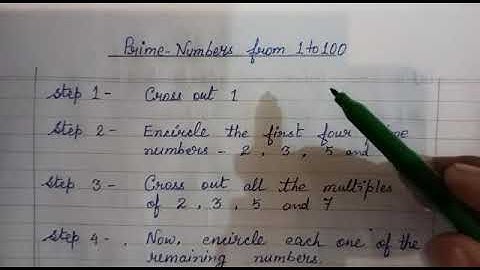 Prime-Numbers from 1 to 100
Step 1- Cross out 1
Step 2- Encircle the first four
numbers - 2, 3, 5 and
Step 3- Cross out all the multiples
of 2, 3, 5 and 7
Step 4-. Now, encircle each one of the
remaining numbers.